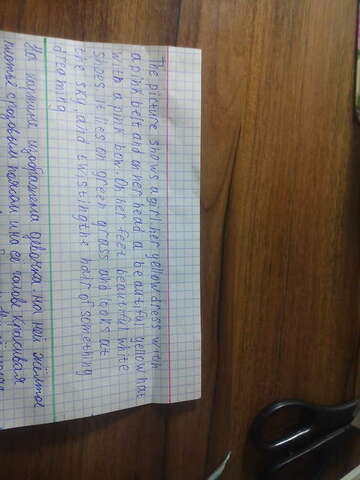 The picture shows a girl her yellow dress with
a pink belt and on her head a beautiful yellow hat
with a pink bow. On her feet beautiful white
shoes. He lies on green grass and looks at
the sky and twisting the hair of something
dreaming
На картине изображена девочка на ней жёлтое
с розовым поясом и на её голове красивая